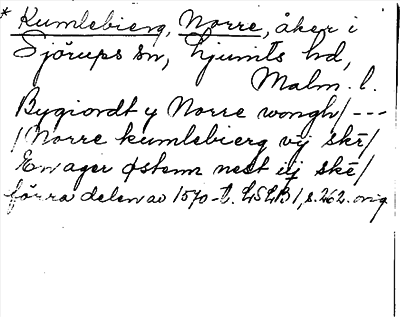 * Kumlebierg, Norre, åker i
Sjörups sn, Ljunits hd,
Malm. l.
Bygiordt y Norre wongh/---
/Norre kumlebierg vÿ skē/
En ager østenn nest iij skē/
förra delen av 1570-t. LSLB 1, s. 262. orig